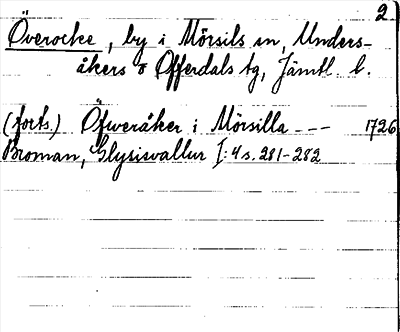 2
Överocke, by i Mörsils sn, Unders-
åkers o Offerdals tg, Jämtl. l.
(forts.) Öfweråker i Mörsilla --- 1726
Broman, Glysisvallur I: 4 s. 281-282